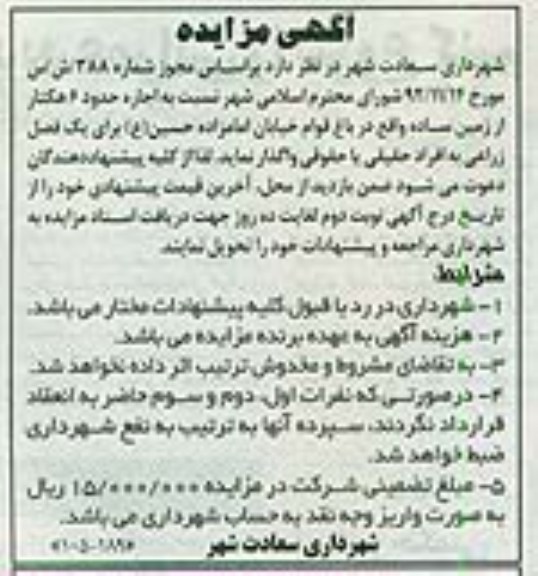 آگهی مزایده
شهرداری سعادت شهر در نظر دارد براساس مجوز شماره ۳۸۸/ش/س
مورخ ۹۲/۱۱/۱۴ شورای محترم اسلامی شهر نسبت به اجاره حدود ۶ هکتار
از زمین ساده واقع در باغ قوام خیابان امامزاده حسین(ع) برای یک فصل
زراعی به افراد حقیقی یا حقوقی واگذار نماید. لذا از کلیه پیشنهاددهندگان
دعوت می شود ضمن بازدید از محل، آخرین قیمت پیشنهادی خود را از
تاریخ درج آگهی نوبت دوم لغایت ده روز جهت دریافت اسناد مزایده به
شهرداری مراجعه و پیشنهادات خود را تحویل نمایند.
شرایط:
۱- شهرداری در رد یا قبول کلیه پیشنهادات مختار می باشد.
۲- هزینه آگهی به عهده برنده مزایده می باشد.
۳- به تقاضای مشروط و مخدوش ترتیب اثر داده نخواهد شد.
۴- در صورتی که نفرات اول، دوم و سوم حاضر به انعقاد
قرارداد نگردند، سپرده آنها به ترتیب به نفع شهرداری
ضبط خواهد شد.
۵- مبلغ تضمینی شرکت در مزایده ۱۵/۰۰۰/۰۰۰ ریال
به صورت واریز وجه نقد به حساب شهرداری می باشد.
شهرداری سعادت شهر